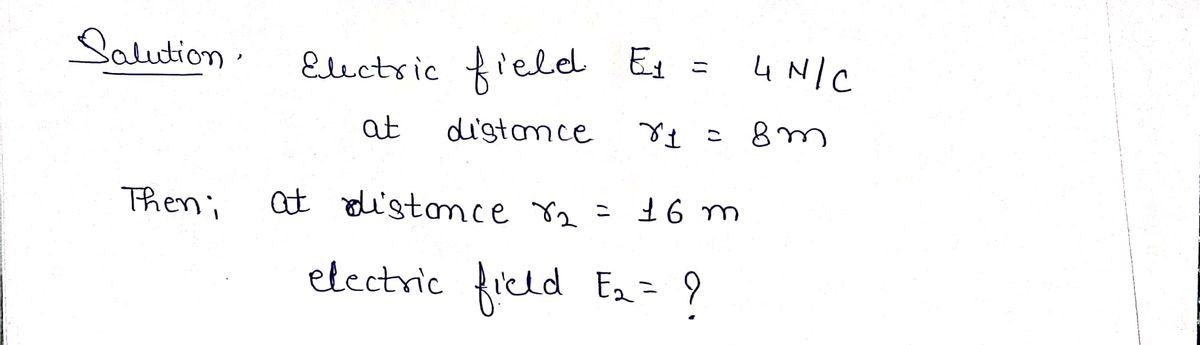 Salution. Electric field E1 = 4 N/C
at distance r1 = 8m
Then; at distance r2 = 16 m
electric field E2 = ?